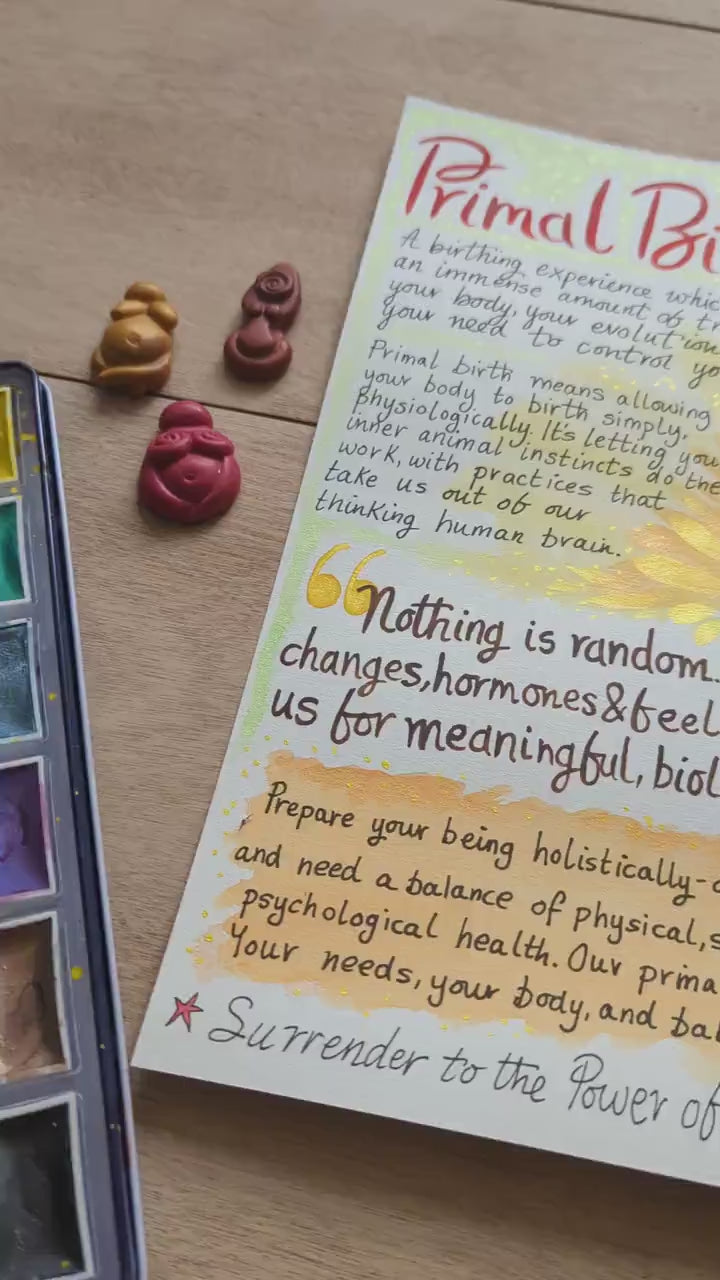 Primal Bi
A birthing experience whic
an immense amount of tr
your body, your evolution
your need to control yo
Primal birth means allowing
your body to birth simply,
physiologically. It's letting you
inner animal instincts do the
work, with practices that
take us out of our
thinking human brain.
“Nothing is random.
changes, hormones & feel
us for meaningful, biol
Prepare your being holistically-
and need a balance of physical, s
psychological health. Our prima
Your needs, your body, and ba
Surrender to the Power of